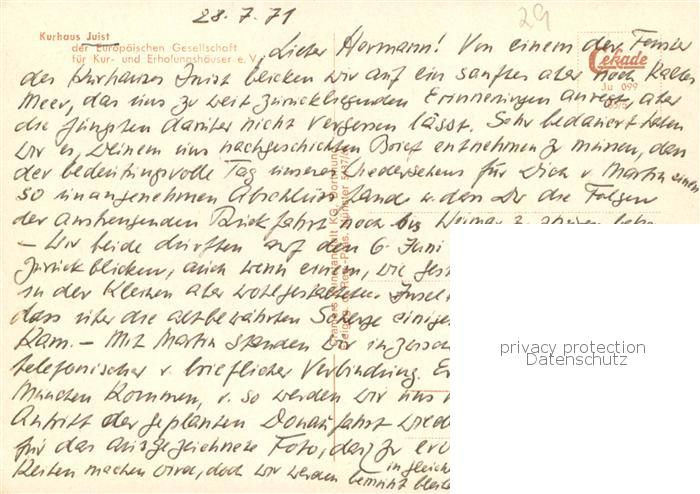 28.7.71
29
Kurhaus Juist
der Europäischen Gesellschaft
für Kur- und Erholungshäuser e.V.
Cekade
Ju 099
Lieber Hermann! Von einem der Fenster
des Kurhauses Juist blicken wir auf ein sanftes aber noch kaltes
Meer, das uns zu weit zurückliegenden Erinnerungen anregt, aber
die jüngsten darüber nicht vergessen lässt. Sehr bedauert haben
wir es, Deinem uns nachgeschickten Brief entnehmen zu müssen, dass
der bedeutungsvolle Tag unseres Wiedersehens für Dich u. Martin einen
so unangenehmen Abschluss fand u. dass Du die Folgen
der anstrengenden Rückfahrt noch bis Weimar zu spüren
– Wir beide durften auf den 6. Juni
zurückblicken, auch wenn einem, wie
in der kleinen aber wohlgestalteten Insel
dass über die altbewährten
kam. – Mit Martin standen wir inzwischen
telefonischer u. brieflicher Verbindung.
München kommen, u. so werden wir uns
Antritt der geplanten Donaufahrt
für das ausgezeichnete Foto, das
in gleich
Kesten machen wird, doch wir werden bemüht
privacy protection
Datenschutz